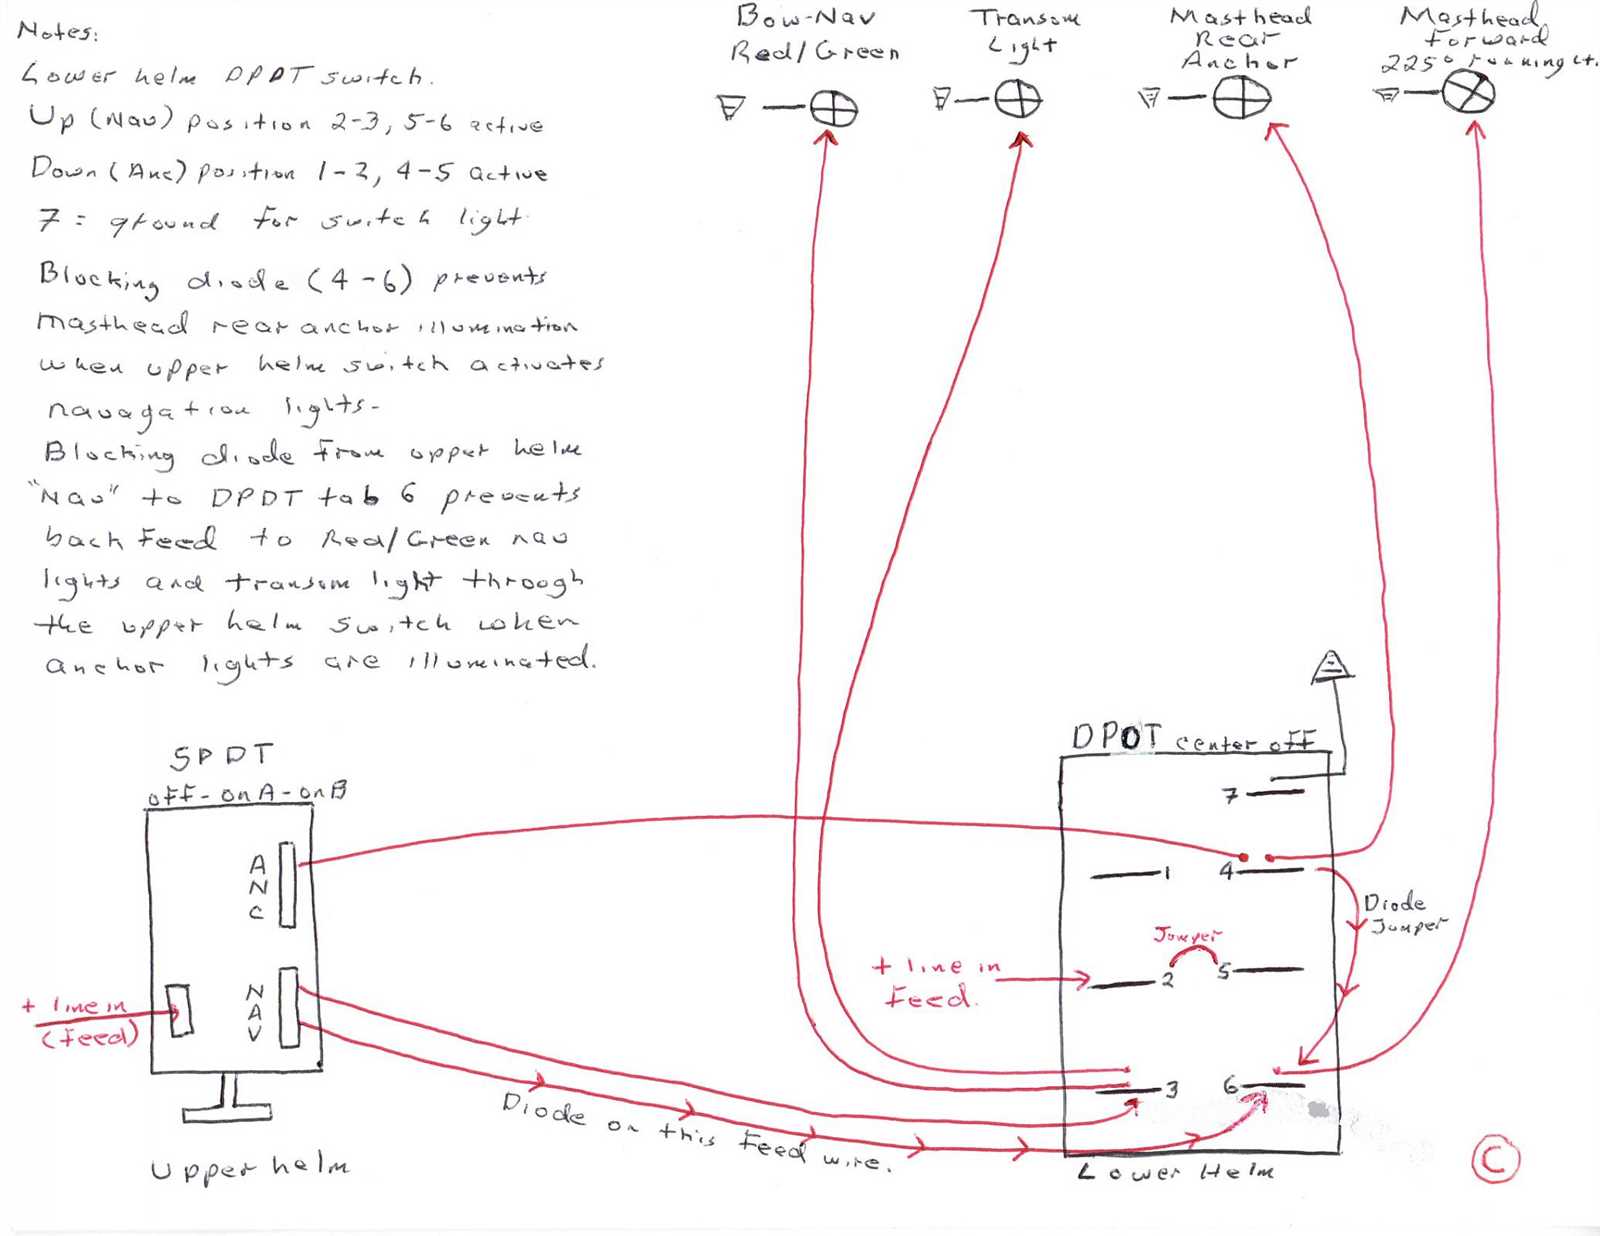 Notes:
Lower helm DPDT switch.
Up (Nav) position 2-3, 5-6 active
Down (Anc) position 1-2, 4-5 active
7 = ground for switch light
Blocking diode (4-6) prevents
masthead rear anchor illumination
when upper helm switch activates
navagation lights-
Blocking diode from upper helm
"Nav" to DPDT tab 6 prevents
back feed to Red/Green nav
lights and transom light through
the upper helm switch when
anchor lights are illuminated.
Bow-Nav
Red/Green
Transom
Light
Masthead
Rear
Anchor
Masthead
forward
225° running Lt.
SPDT
off-onA-onB
ANC
NAV
+ line in
(feed)
Upper helm
Diode on this feed wire.
DPDT center off
7
1
4
Diode
Jumper
Jumper
+ line in
feed.
2
5
3
6
Lower Helm
C